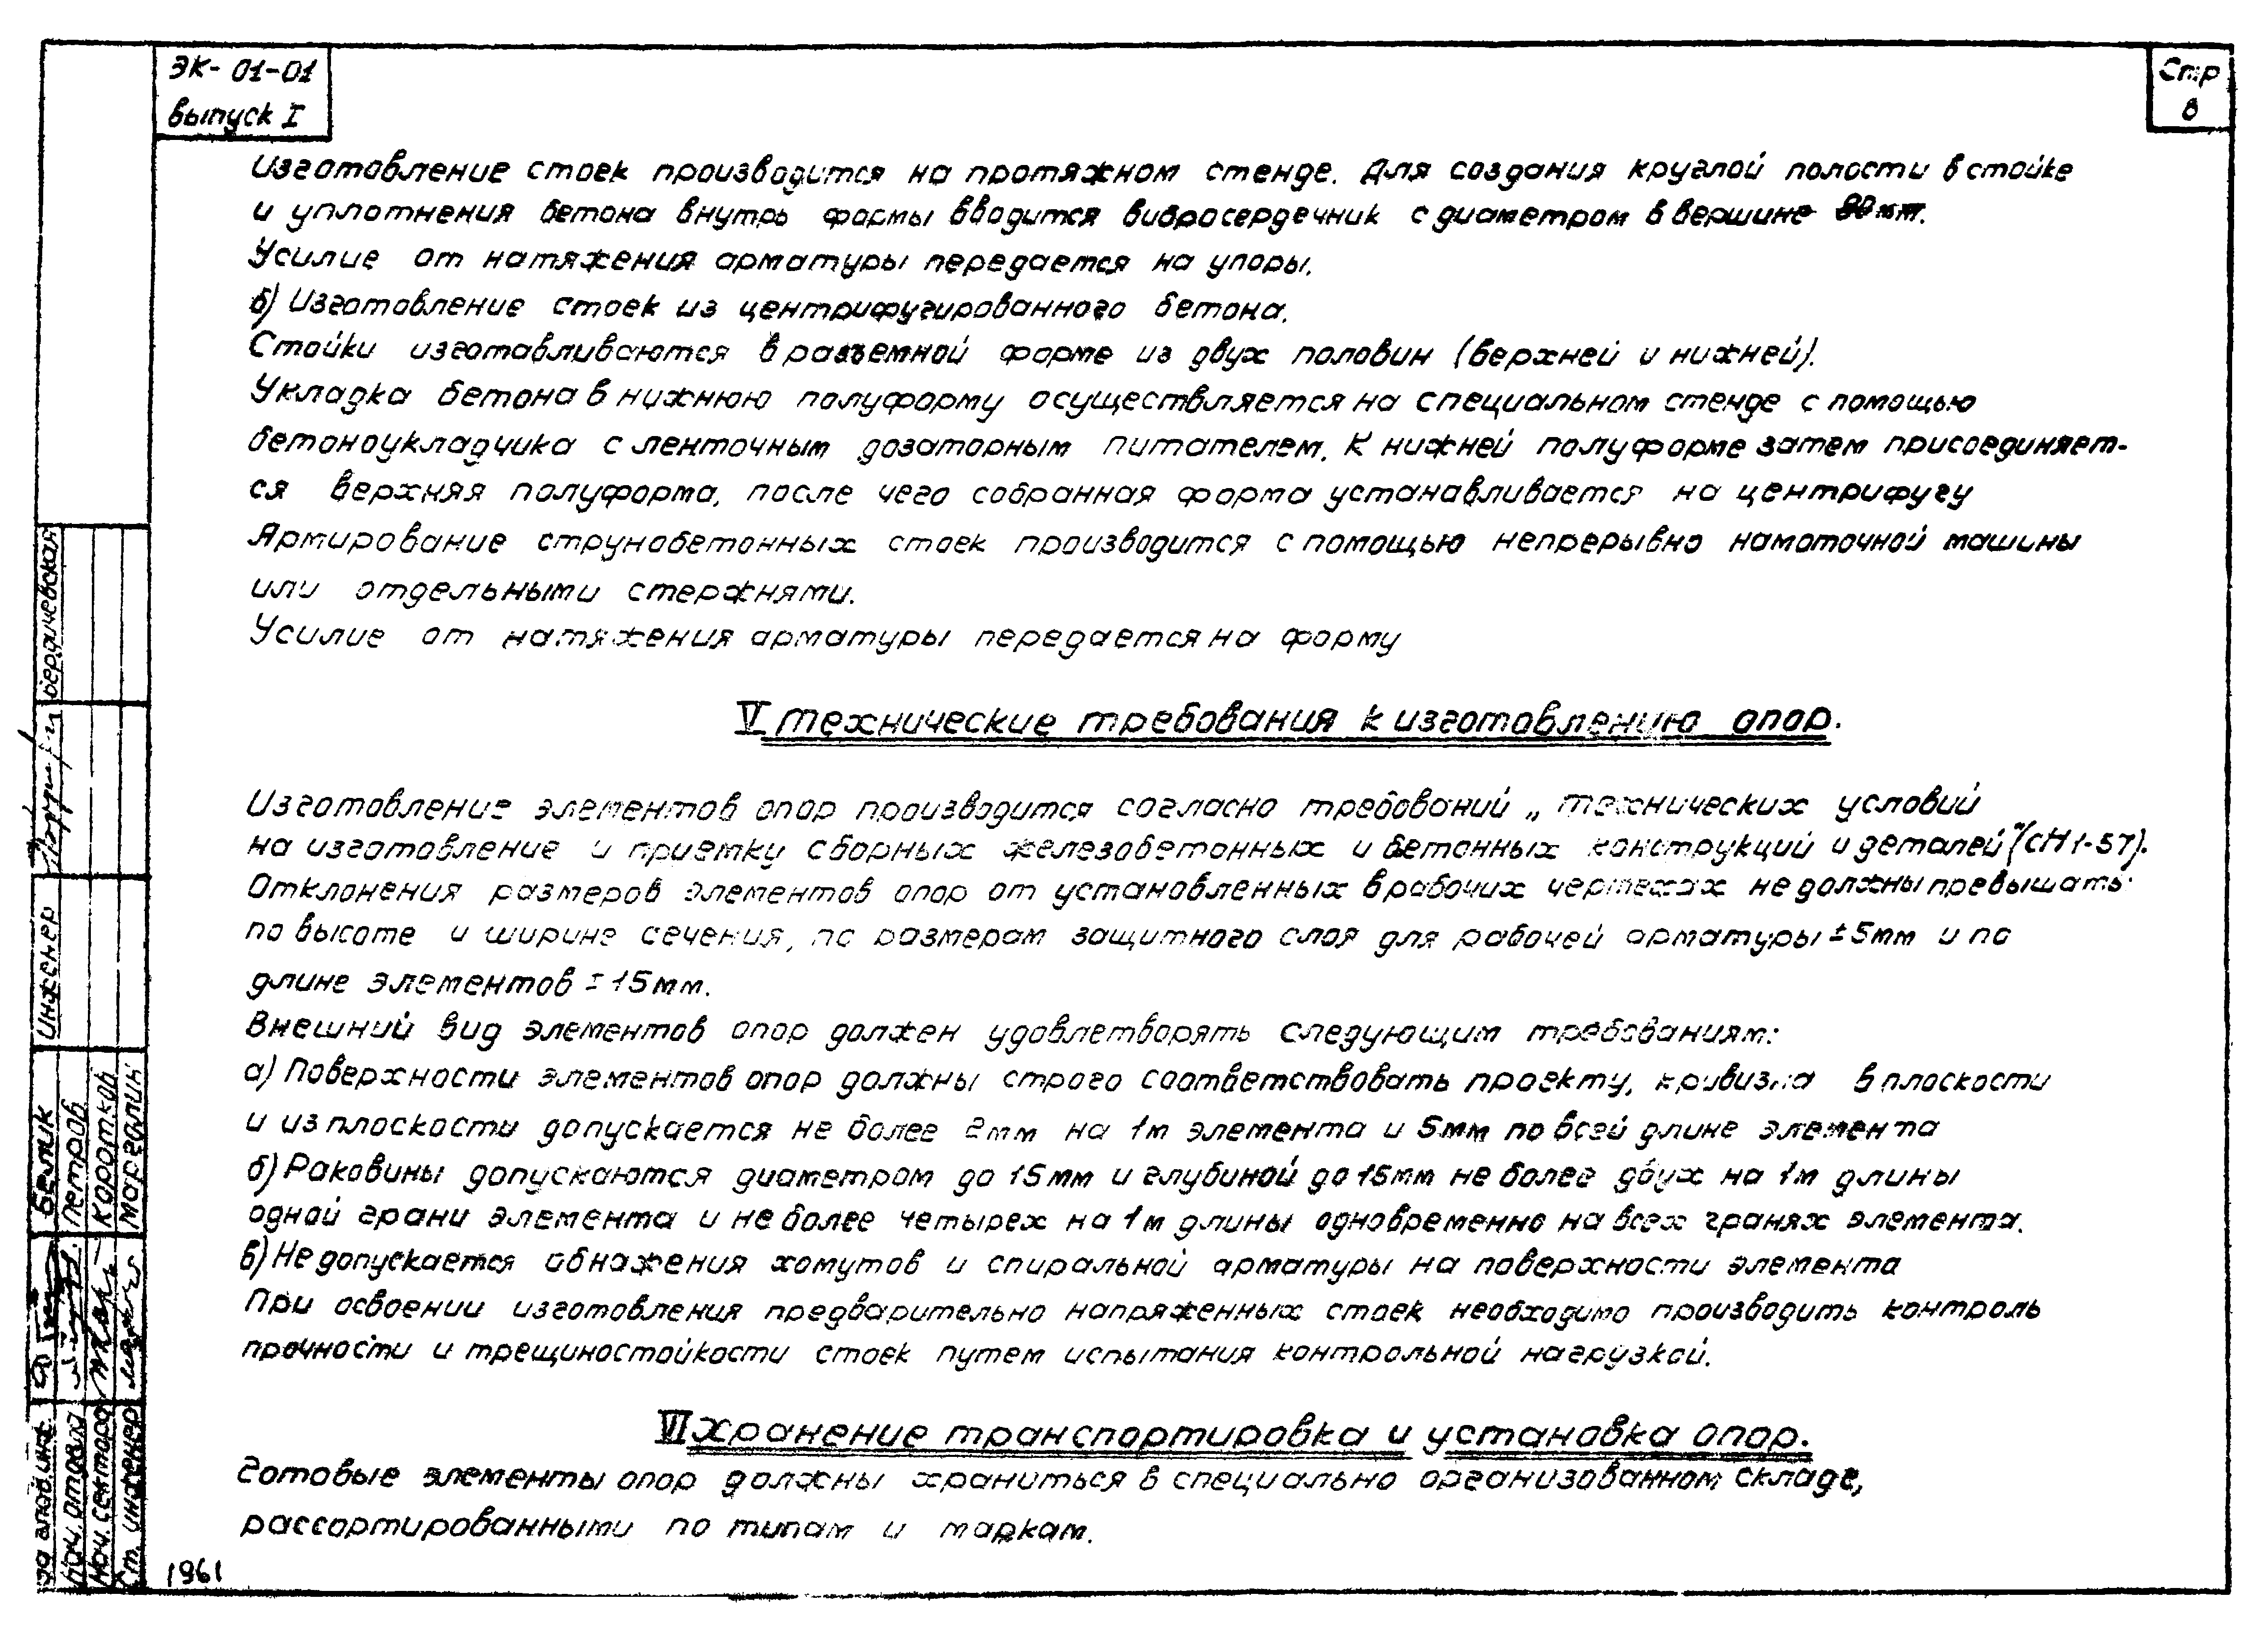 ЭК-01-01
выпуск I
Стр
8
Изготовление стоек производится на протяжном стенде. Для создания круглой полости в стойке
и уплотнения бетона внутрь формы вводится вибросердечник с диаметром в вершине мм.
Усилие от натяжения арматуры передается на упоры.
б) Изготовление стоек из центрифугированного бетона.
Стойки изготавливаются в разъемной форме из двух половин (верхней и нижней).
Укладка бетона в нижнюю полуформу осуществляется на специальном стенде с помощью
бетоноукладчика с ленточным дозаторным питателем. К нижней полуформе затем присоединяет-
ся верхняя полуформа, после чего собранная форма устанавливается на центрифугу
Армирование струнобетонных стоек производится с помощью непрерывно намоточной машины
или отдельными стержнями.
Усилие от натяжения арматуры передается на форму
V Технические требования к изготовлению опор.
Изготовление элементов опор производится согласно требований „технических условий
на изготовление и приемку сборных железобетонных и бетонных конструкций и деталей" (СН 1-57).
Отклонения размеров элементов опор от установленных в рабочих чертежах не должны превышать
по высоте и ширине сечения, по размерам защитного слоя для рабочей арматуры ±5мм и по
длине элементов ±15мм.
Внешний вид элементов опор должен удовлетворять следующим требованиям:
а) Поверхности элементов опор должны строго соответствовать проекту, кривизна в плоскости
и из плоскости допускается не более 2мм на 1м элемента и 5мм по всей длине элемента
б) Раковины допускаются диаметром до 15мм и глубиной до 15мм не более двух на 1м длины
одной грани элемента и не более четырех на 1м длины одновременно на всех гранях элемента.
в) Не допускается обнажения хомутов и спиральной арматуры на поверхности элемента
При освоении изготовления предварительно напряженных стоек необходимо производить контроль
прочности и трещиностойкости стоек путем испытания контрольной нагрузкой.
VI Хранение транспортировка и установка опор.
Готовые элементы опор должны храниться в специально организованном складе,
рассортированными по типам и маркам.
1961
Бердичевская
инженер
Белик
Петров
Коротков
Марголин
Нач. отдела
Нач. сектора
Ст. инженер